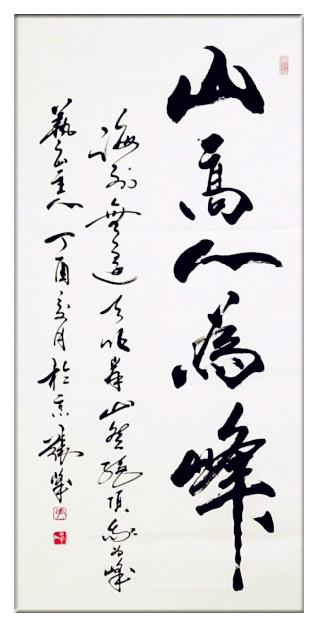 山高人為峰
海到無邊天作岸山登絕頂我為峰
主人丁酉夏月於京